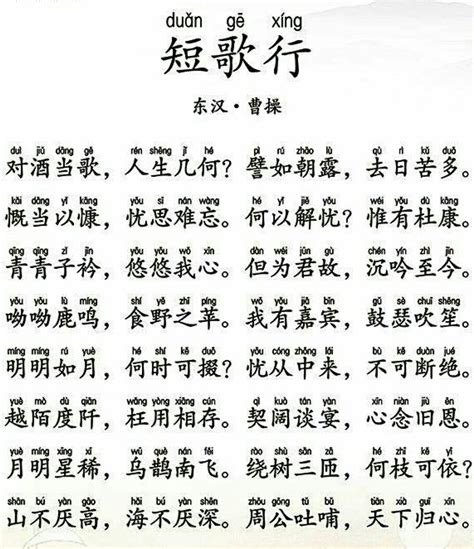 duǎn gē xíng
短歌行
东汉·曹操
duì jiǔ dāng gē rén shēng jǐ hé pì rú zhāo lù qù rì kǔ duō
对酒当歌，人生几何？譬如朝露，去日苦多。
kǎi dāng yǐ kāng yōu sī nán wàng hé yǐ jiě yōu wéi yǒu dù kāng
慨当以慷，忧思难忘。何以解忧？惟有杜康。
qīng qīng zǐ jīn yōu yōu wǒ xīn dàn wèi jūn gù chén yín zhì jīn
青青子衿，悠悠我心。但为君故，沉吟至今。
yōu yōu lù míng shí yě zhī píng wǒ yǒu jiā bīn gǔ sè chuī shēng
呦呦鹿鸣，食野之苹。我有嘉宾，鼓瑟吹笙。
míng míng rú yuè hé shí kě duō yōu cóng zhōng lái bù kě duàn jué
明明如月，何时可掇？忧从中来，不可断绝。
yuè mò dù qiān wǎng yòng xiāng cún qì kuò tán yàn xīn niàn jiù ēn
越陌度阡，枉用相存。契阔谈宴，心念旧恩。
yuè míng xīng xī wū què nán fēi rào shù sān zā hé zhī kě yī
月明星稀，乌鹊南飞。绕树三匝，何枝可依？
shān bú yàn gāo hǎi bú yàn shēn zhōu gōng tǔ bǔ tiān xià guī xīn
山不厌高，海不厌深。周公吐哺，天下归心。